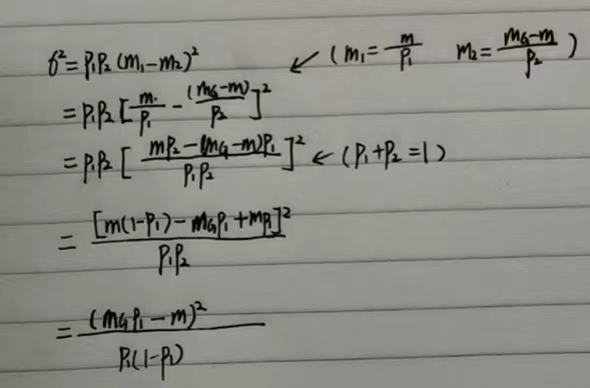 σ² = P₁P₂ (m₁ - m₂)² ← ( m₁ = m/P₁  m₂ = (mG - m)/P₂ )
= P₁P₂ [ m/P₁ - (mG - m)/P₂ ]²
= P₁P₂ [ (mP₂ - (mG - m)P₁)/(P₁P₂) ]² ← (P₁ + P₂ = 1)
= [m(1 - P₁) - mGP₁ + mP₁]²/(P₁P₂)
= (mGP₁ - m)²/(P₁(1 - P₁))